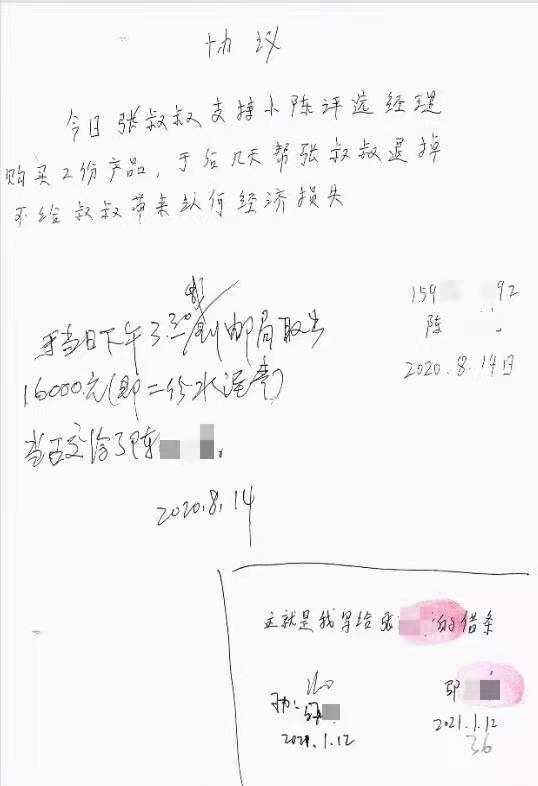 协议
今日张叔叔支持小陈评选经理
购买2份产品,于后几天帮张叔叔退掉
不给叔叔带来任何经济损失
159 92
陈
2020.8.14日
于当日下午3:30到邮局取出
16000元(即二份水潽费)
当面交给了陈
2020.8.14
这就是我写给张 的借条
2021.1.12
即
2021.1.12
36